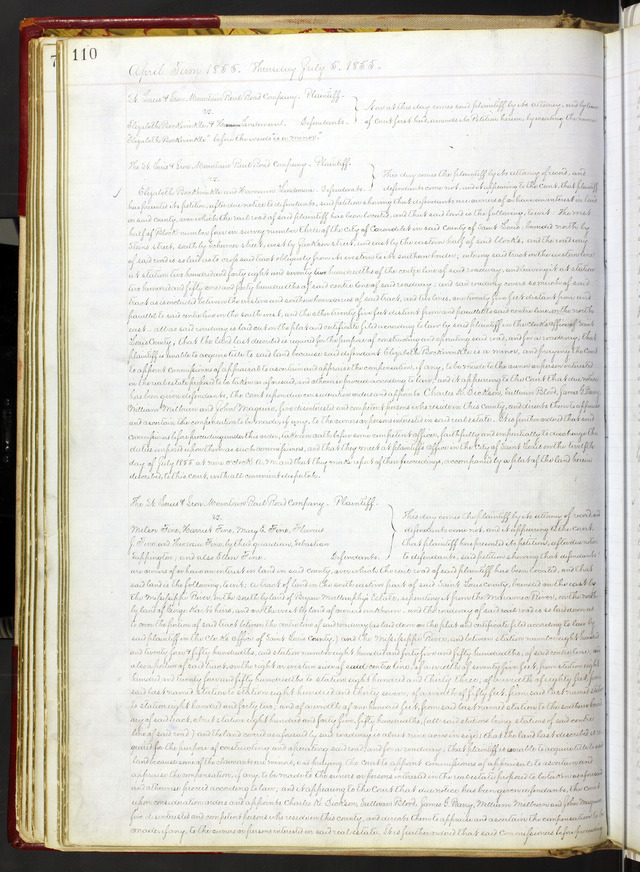 110
April Term 1855. Thursday July 5, 1855.
St. Louis & Iron Mountain Rail Road Company. Plaintiff.
vs.
Elizabeth Bockwinkle & Lindemann. Defendants.
Now at this day comes said plaintiff by its attorney, and by leave
of Court first had, amends its Petition herein, by inserting the name
Elizabeth Bockwinkle before the words "is a minor."
The St. Louis & Iron Mountain Rail Road Company. Plaintiff.
vs.
Elizabeth Bockwinkle and Hermann Lindemann. Defendants.
This day comes the plaintiff by its attorney of record, and
defendants come not, and it appearing to the Court, that plaintiff
has presented its petition, after due notice to defendants, said petition showing that defendants are owners of or have an interest in land
in said county, over which the rail road of said plaintiff has been located, and that said land is the following, to wit: The west
half of Block number four in survey number three of the City of Carondelet in said County of Saint Louis, bounded north by
street, south by street, west by Jackson street, and east by the eastern half of said block, and the roadway
of said road is so laid as to cross said tract obliquely from its western to its northern border; entering said tract on the western line
at station two hundred and forty eight and seventy two hundredths of the centre line of said roadway, and leaving it at station
two hundred and fifty one and forty hundredths of said centre line of said roadway; and said roadway covers so much of said
tract as is included between the western and northern boundaries of said tract, and two lines, one twenty five feet distant from and
parallel to said centre line on the south west, and the other twenty five feet distant from and parallel to said centre line on the north
east. all as said roadway is laid out on the plat and certificate filed according to law by said plaintiff in the Clerk's Office of Saint
Louis County; that the land last described is required for the purpose of constructing and operating said road, and for a roadway; that
plaintiff is unable to acquire title to said land because said defendant Elizabeth Bockwinkle is a minor, and praying the Court
to appoint commissioners of appraisal to ascertain and appraise the compensation, if any, to be made to the owners or persons interested
in the real estate proposed to be taken as aforesaid, and otherwise proceed according to law; and it appearing to the Court that due notice
has been given defendants, the Court upon due consideration orders and appoints Charles K. Dickson, Sullivan Blood, James G. Barry,
William Milburn and John Maguire, five disinterested and competent persons who reside in this County, and directs them to appraise
and ascertain the compensation to be made, if any, to the owners or persons interested in said real estate. It is further ordered that said
commissioners before proceeding under this order, take an oath before some competent officer, faithfully and impartially to discharge the
duties imposed upon them as such commissioners, and that they meet at plaintiff's office in the City of Saint Louis on the
day of July 1855 at nine o'clock A.M. and that they make report of their proceedings, accompanied by a plat of the land herein
described, to this Court, with all convenient dispatch.
The St. Louis & Iron Mountain Rail Road Company. Plaintiff.
vs.
Wilson Fine, Harriet Fine, Mary E. Fine,
J. Fine and Fine, by their guardian, Sebastian
Sappington, and also Fine Defendants.
This day comes the plaintiff by its attorney of record and
defendants come not, and it appearing to the Court,
that plaintiff has presented its petition, after due notice
to defendants, said petition showing that defendants
are owners of or have an interest in land in said county, over which the rail road of said plaintiff has been located, and that
said land is the following, to wit: a tract of land in the south eastern part of said Saint Louis County, bounded on the east by
the Mississippi River, on the south by land of Bryan Mullanphy's Estate, separating it from the Maramec River, on the north
by land of heirs, and on the west by land of owners unknown, and the roadway of said rail road is so laid down as
to cover the portion of said tract between the centre line of said roadway (as laid down on the plat and certificate filed according to law by
said plaintiff in the Clerk's Office of Saint Louis County,) and the Mississippi River, and between station number eight hundred
and twenty four & fifty hundredths, and station number eight hundred and forty five and fifty hundredths, of said centre line; and
also a portion of said tract, on the right or western side of said centre line, of a width of seventy five feet, from station eight
hundred and twenty four and fifty hundredths to station eight hundred and thirty three; of a width of eighty feet, from
said last named station to station eight hundred and thirty seven; of a width of fifty feet, from said last named station
to station eight hundred and forty two; and of a width of one hundred feet, from said last named station to the southern bound-
ary of said tract, at station eight hundred and forty five fifty hundredths, (all said stations being stations of said centre
line of said road) and the land covered as aforesaid by said roadway is about nine acres in size; that the land last described is re-
quired for the purpose of constructing and operating said road, and for a roadway; that plaintiff is unable to acquire title to said
land because some of the claimants are minors, and praying the Court to appoint commissioners of appraisal to ascertain and
appraise the compensation, if any, to be made to the owners or persons interested in the real estate proposed to be taken as aforesaid
and otherwise proceed according to law; and it appearing to the Court that due notice has been given defendants, the Court
upon consideration orders and appoints Charles K. Dickson, Sullivan Blood, James G. Barry, William Milburn and John Maguire,
five disinterested and competent persons who reside in this county, and directs them to appraise and ascertain the compensation to be
made, if any, to the owners or persons interested in said real estate. It is further ordered that said Commissioners before proceeding